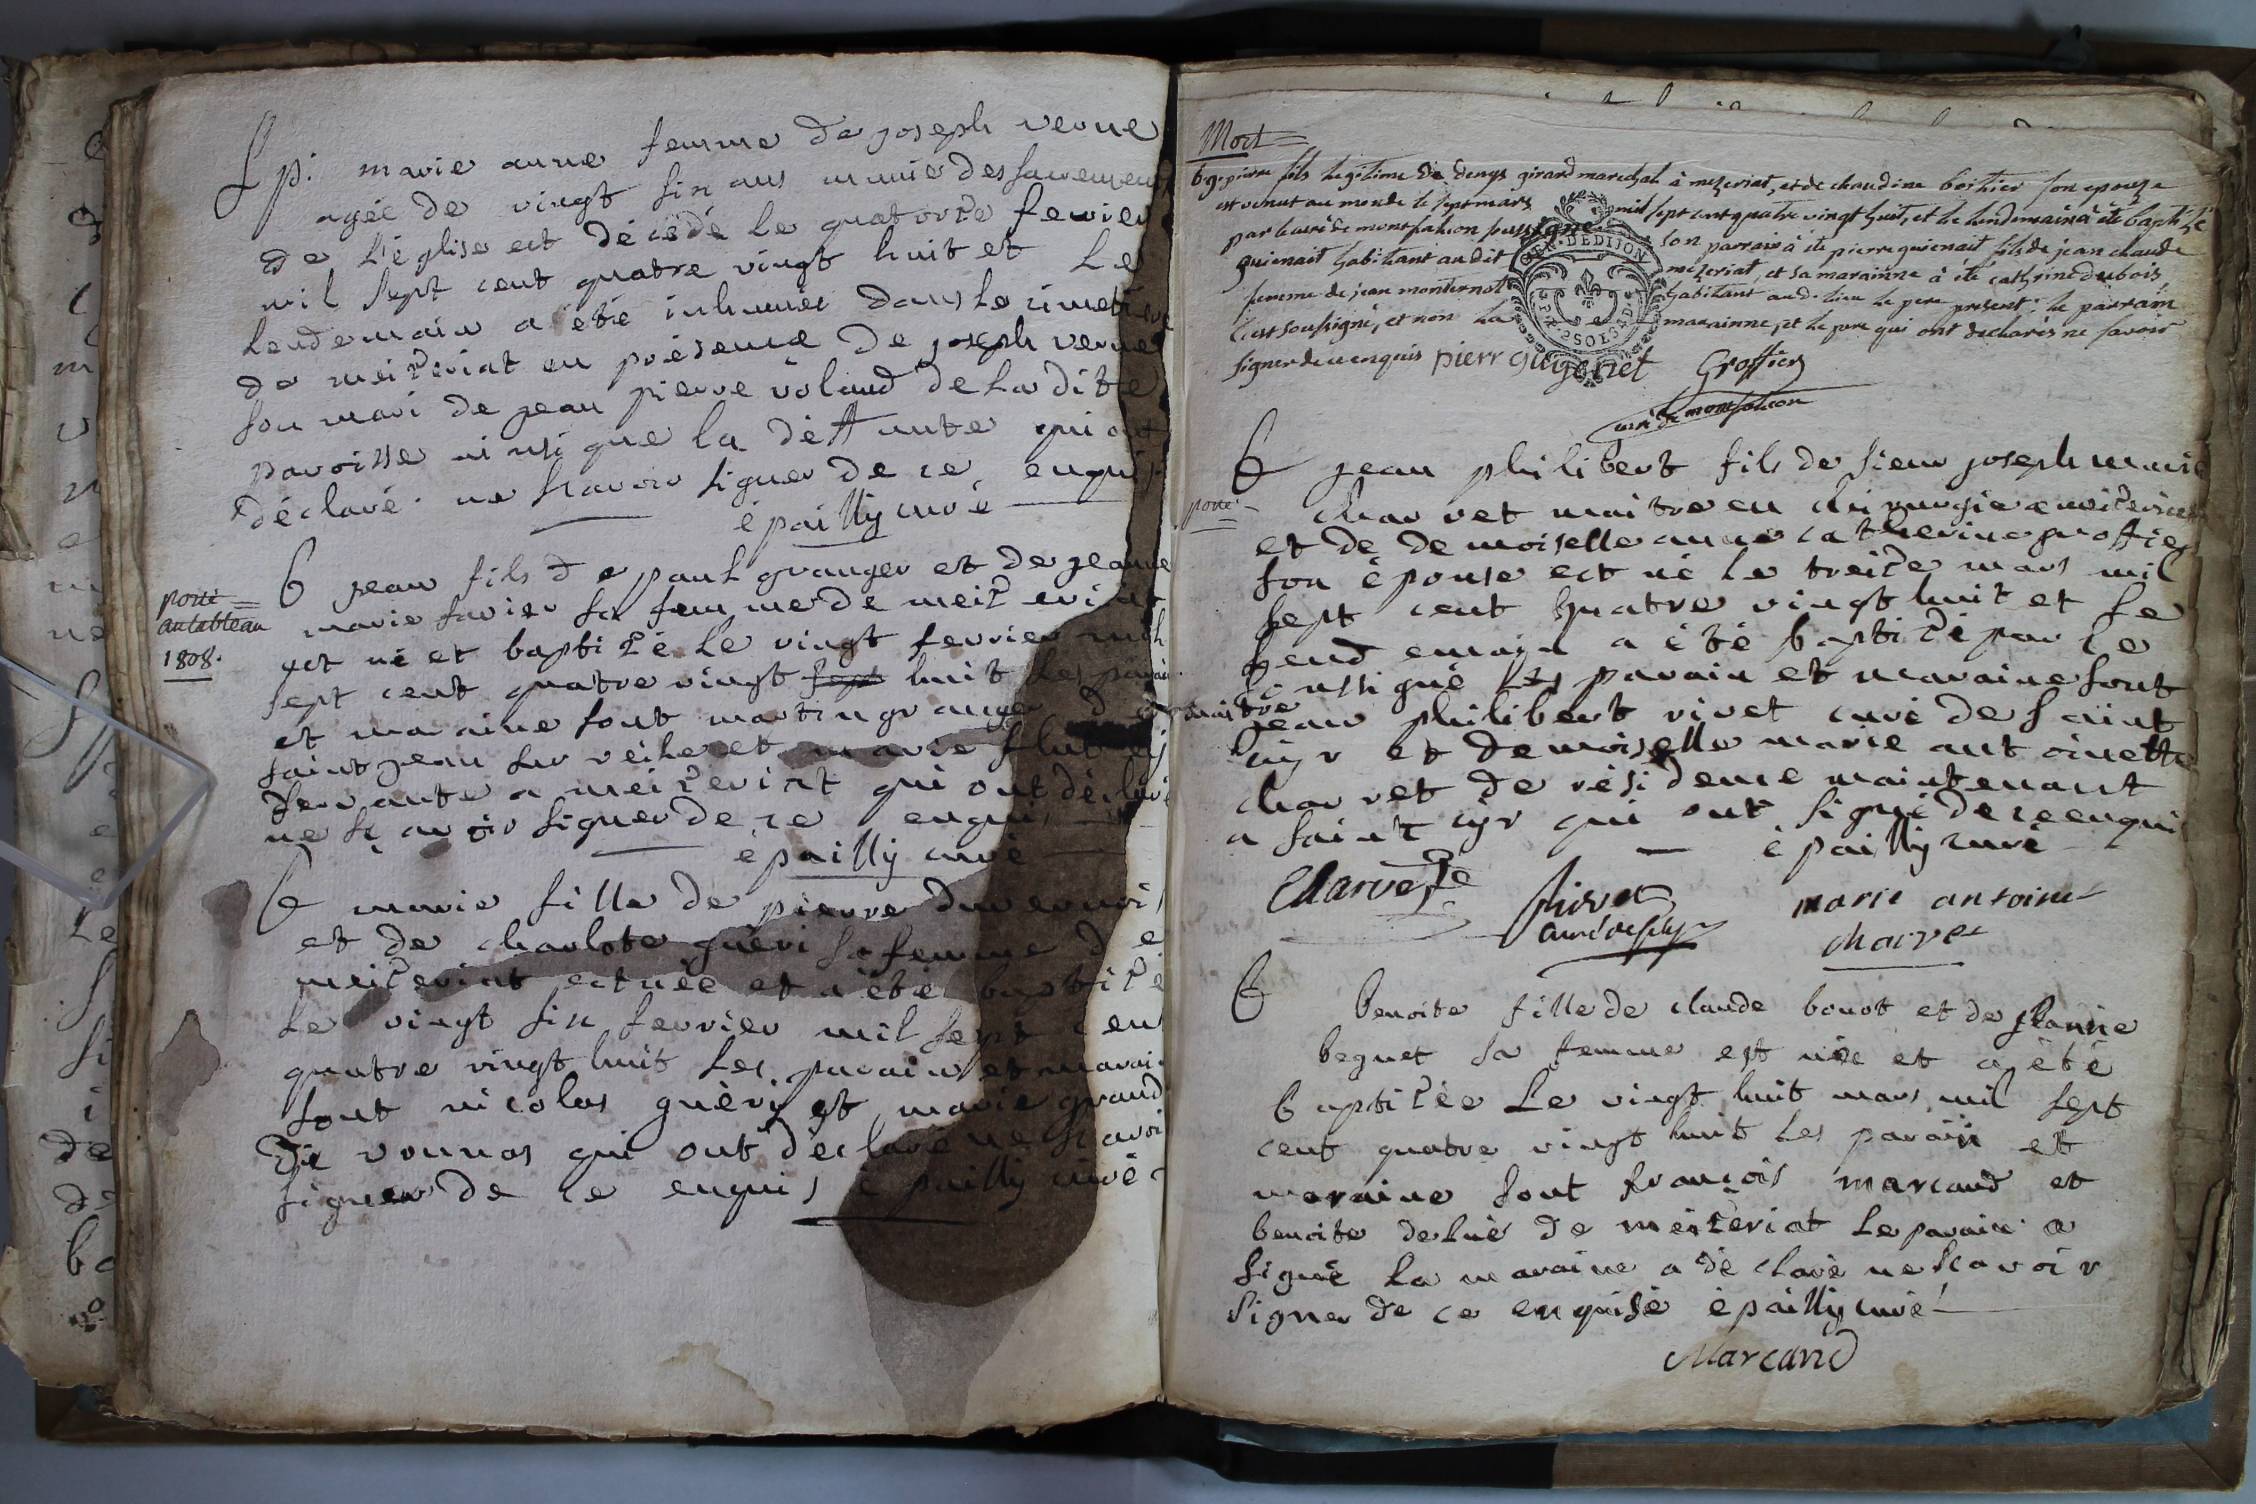 Spi. marie anne femme de joseph verne
agée de vingt sin ans munie des sacremens
de l'église est décédé le quatorze fevrier
mil sept cent quatre vingt huit et le
lendemain a été inhumée dans le cimetiere
de meizeriat en présence de joseph verne
son mari de jean pierre voland de la dite
paroisse ainsi que la deffunte qui ont
déclaré ne scavoir signer de ce enquis
épailly curé
porté
au tableau
1808.
b jean fils de paul granger et de jeanne
marie favier sa femme de meizeriat
est né et baptizé le vingt fevrier mil
sept cent quatre vingt sept huit les parain
et maraine sont martin granger de
saint jean sur veihe et marie
servante a meizeriat qui ont déclaré
ne scavoir signer de ce enquis
épailly curé
b marie fille de pierre duvernois
et de charlote guéri sa femme de
meizeriat est née et a été baptizé
le vingt sin fevrier mil sept cent
quatre vingt huit les parain et marai
sont nicolas guéri et marie grand
de vonnas qui ont déclaré ne scavoi
signer de ce enquis épailly curé
Mort
b. g. pierre fils legitime de denys girard marechal à mezeriat, et de claudine boithier son epouse
est venut au monde le sept mars mil sept cent quatre vingt huit, et le lendemain à été baptisé
par le curé de montfalcon soussigné son parrain à été pierre quienait fils de jean claude
quienait habitant audit mezeriat, et sa marainne à été cathrine dubois
femme de jean monternot habitant aud. lieu le pere present: le parrain
c'est soussigné, et non la marainne, et le pere qui ont declarés ne savoir
signer de ce enquis pierr Groffier
curé de montfalcon
GEN. DE DIJON
b jean philibert fils de sieur joseph marie
porté
charvet maitre en chirurgie a meizeriat
et de demoiselle anne catherine groffier
son épouse est né le treize mars mil
sept cent quatre vingt huit et le
lendemain a été baptizé par le
soussigné les parain et maraine sont
maitre
jean philibert rivet curé de saint
cyr et demoiselle marie antoinette
charvet de résidence maintenant
a saint cyr qui ont signé de ce enquis
épailly curé
Charvet
Rivet
curé de st cyr
marie antoine
charve
b benoite fille de claude bouot et de jeanne
beguet sa femme est née et a été
baptizée le vingt huit mars mil sept
cent quatre vingt huit les parain et
maraine sont françois marcand et
benoite delué de meizeriat le parain a
signé la maraine a déclaré ne scavoir
signer de ce enquisé épailly curé
Marcand